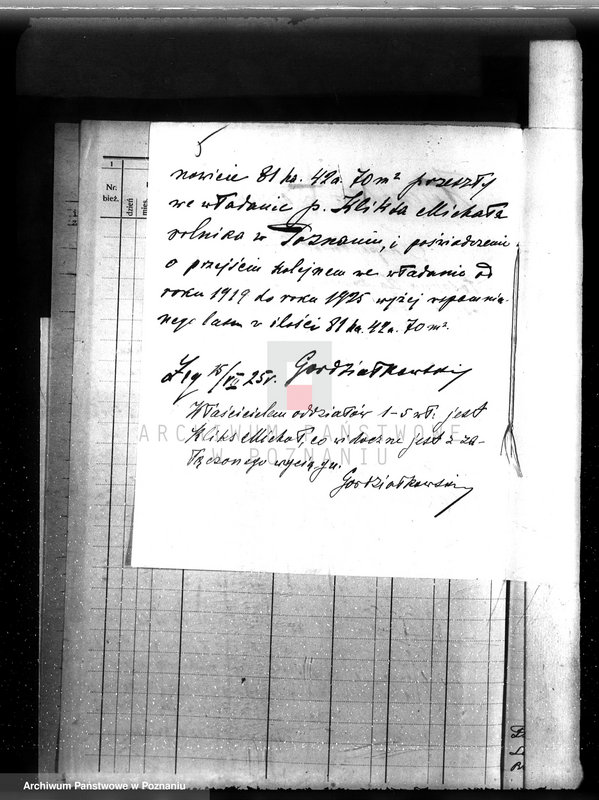 5
nowicie 81 ha. 42a. 70 m² przeszły
we władanie p. Kliksa Michała
rolnika w Poznaniu, i poświadczenie
o przejściu kolejnem we władanie od
roku 1919 do roku 1925 wyżej wspomnia-
nego lasu w ilości 81 ha. 42a. 70 m².
15/VII 25 r. Gordziałkowski
Właścicielem oddziałów 1-5 wł. jest
Kliks Michał, co widoczne jest z za-
łączonego wyciągu.
Gordziałkowski
1
Nr.
bież.
dzień
mies.
ARCHIWUM PAŃSTWOWE
W POZNANIU
Archiwum Państwowe w Poznaniu